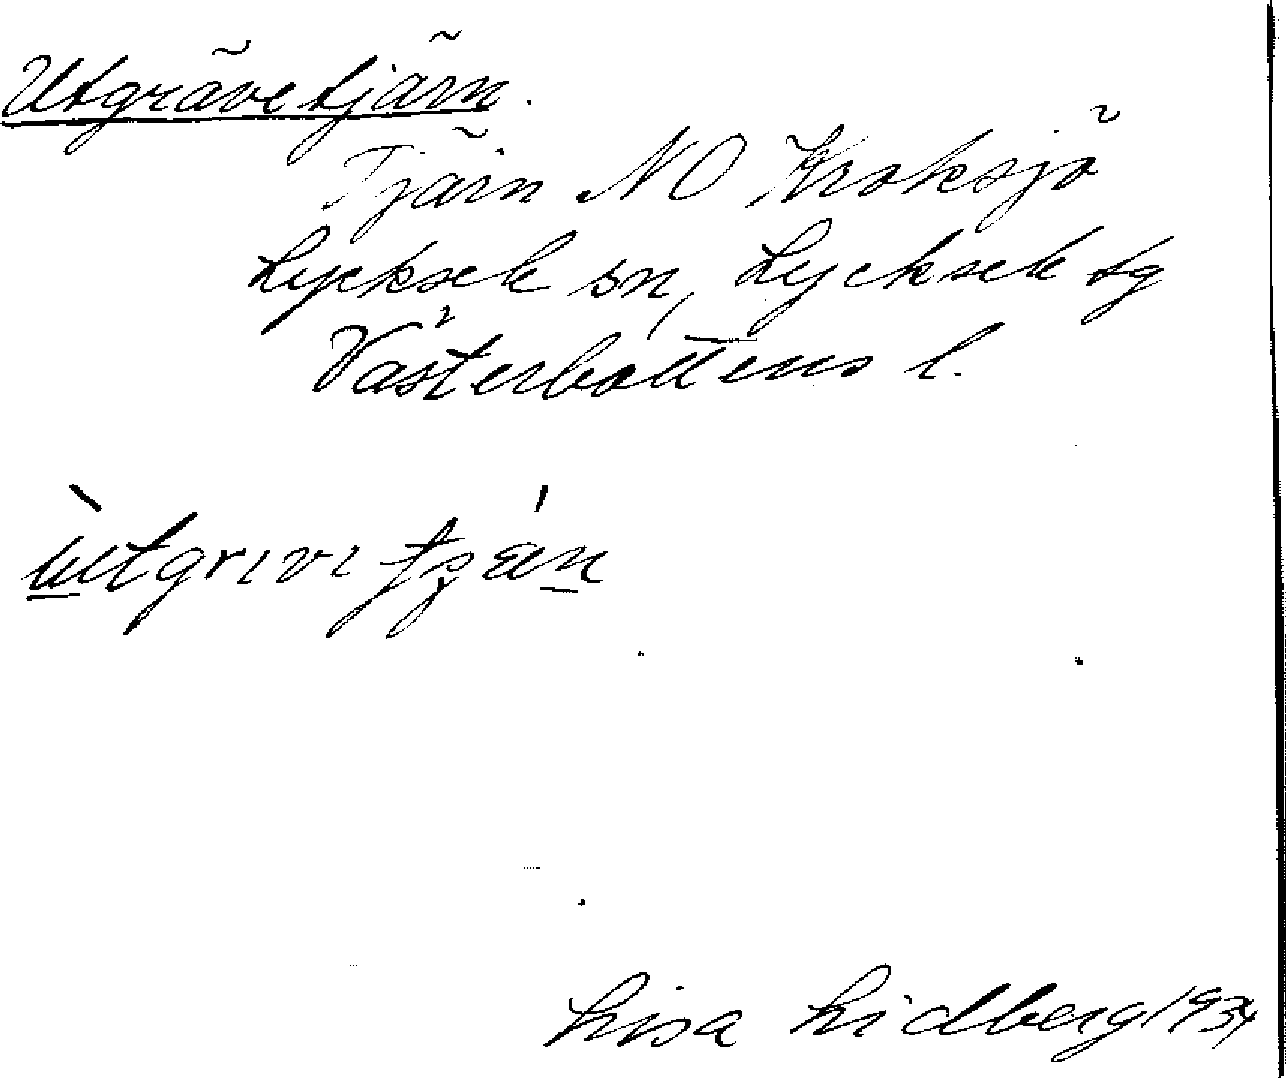 Utgrävetjärn.
Tjärn NO Kroksjö
Lycksele sn, Lycksele tg
Västerbottens l.
ùtgrıvı tȷ́än
Lisa Lidberg 1934